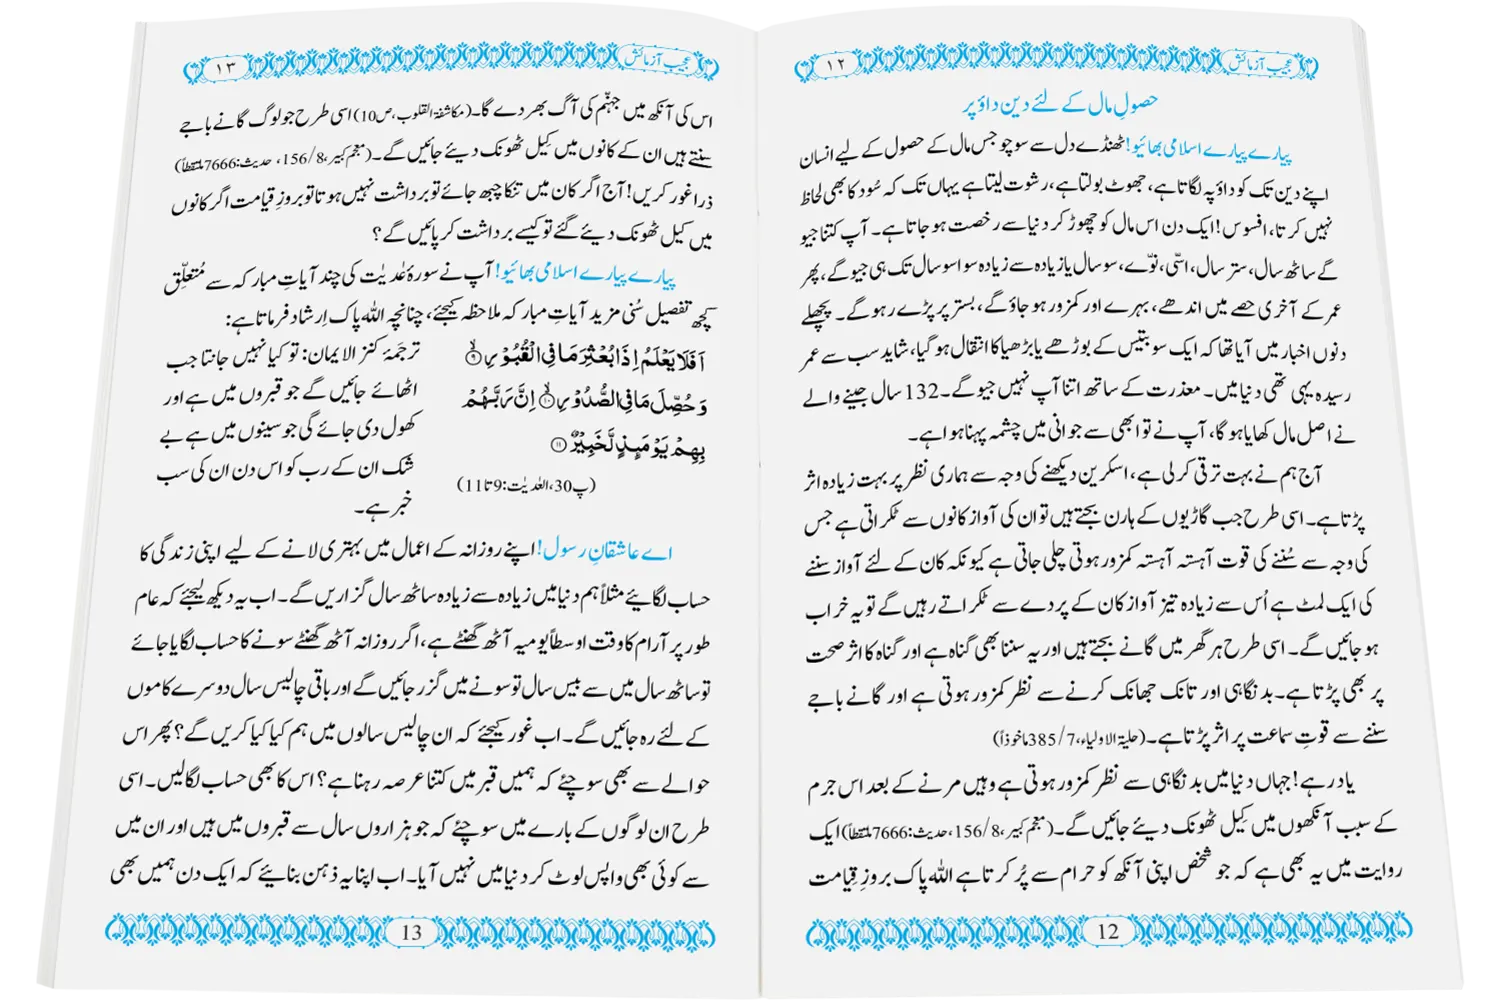 عجیب آزمائش
۱۲
حصولِ مال کے لئے دین داؤ پر
پیارے پیارے اسلامی بھائیو! ٹھنڈے دل سے سوچو جس مال کے حصول کے لیے انسان
اپنے دین تک کو داؤ پہ لگاتا ہے، جھوٹ بولتا ہے، رشوت لیتا ہے یہاں تک کہ سُود کا بھی لحاظ
نہیں کرتا، افسوس! ایک دن اس مال کو چھوڑ کر دنیا سے رخصت ہو جاتا ہے۔ آپ کتنا جیو
گے ساٹھ سال، ستر سال، اسّی، نوّے، سو سال یا زیادہ سے زیادہ سوا سو سال تک ہی جیو گے، پھر
عمر کے آخری حصے میں اندھے، بہرے اور کمزور ہو جاؤ گے، بستر پر پڑے رہو گے۔ پچھلے
دنوں اخبار میں آیا تھا کہ ایک سو بتیس کے بوڑھے یا بڑھیا کا انتقال ہو گیا، شاید سب سے عمر
رسیدہ یہی تھی دنیا میں۔ معذرت کے ساتھ اتنا آپ نہیں جیو گے۔ 132 سال جینے والے
نے اصل مال کھایا ہو گا، آپ نے تو ابھی سے جوانی میں چشمہ پہنا ہوا ہے۔
آج ہم نے بہت ترقی کر لی ہے، اسکرین دیکھنے کی وجہ سے ہماری نظر پر بہت زیادہ اثر
پڑتا ہے۔ اسی طرح جب گاڑیوں کے ہارن بجتے ہیں تو ان کی آواز کانوں سے ٹکراتی ہے جس
کی وجہ سے سُننے کی قوت آہستہ آہستہ کمزور ہوتی چلی جاتی ہے کیونکہ کان کے لئے آواز سننے
کی ایک لمٹ ہے اُس سے زیادہ تیز آواز کان کے پردے سے ٹکراتے رہیں گے تو یہ خراب
ہو جائیں گے۔ اسی طرح ہر گھر میں گانے بجتے ہیں اور یہ سننا بھی گناہ ہے اور گناہ کا اثر صحت
پر بھی پڑتا ہے۔ بد نگاہی اور تانک جھانک کرنے سے نظر کمزور ہوتی ہے اور گانے باجے
سننے سے قوتِ سماعت پر اثر پڑتا ہے۔ (حلیۃ الاولیاء، 7/385 ماخوذاً)
یاد رہے! جہاں دنیا میں بد نگاہی سے نظر کمزور ہوتی ہے وہیں مرنے کے بعد اس جرم
کے سبب آنکھوں میں کِیل ٹھونک دیئے جائیں گے۔ (معجم کبیر، 8/156، حدیث: 7666 ملتقطاً) ایک
روایت میں یہ بھی ہے کہ جو شخص اپنی آنکھ کو حرام سے پُر کرتا ہے اللہ پاک بروزِ قیامت
12
عجیب آزمائش
۱۳
اس کی آنکھ میں جہنّم کی آگ بھر دے گا۔ (مکاشفۃ القلوب، ص10) اسی طرح جو لوگ گانے باجے
سنتے ہیں ان کے کانوں میں کِیل ٹھونک دیئے جائیں گے۔ (معجم کبیر، 8/156، حدیث: 7666 ملتقطاً)
ذرا غور کریں! آج اگر کان میں تنکا چبھ جائے تو برداشت نہیں ہوتا تو بروزِ قیامت اگر کانوں
میں کیل ٹھونک دیئے گئے تو کیسے برداشت کر پائیں گے؟
پیارے پیارے اسلامی بھائیو! آپ نے سورۂ عٰدیٰت کی چند آیاتِ مبارکہ سے مُتعلِّق
کچھ تفصیل سُنی مزید آیاتِ مبارکہ ملاحظہ کیجئے، چنانچہ اللہ پاک اِرشاد فرماتا ہے:
اَفَلَا یَعْلَمُ اِذَا بُعْثِرَ مَا فِی الْقُبُوْرِۙ۹
وَ حُصِّلَ مَا فِی الصُّدُوْرِۙ۱۰ اِنَّ رَبَّهُمْ
بِهِمْ یَوْمَىٕذٍ لَّخَبِیْرٌ۠۱۱
(پ30، العٰدیٰت: 9تا11)
ترجَمۂ کنز الایمان: تو کیا نہیں جانتا جب
اٹھائے جائیں گے جو قبروں میں ہے اور
کھول دی جائے گی جو سینوں میں ہے بے
شک ان کے رب کو اس دن ان کی سب
خبر ہے۔
اے عاشقانِ رسول! اپنے روزانہ کے اعمال میں بہتری لانے کے لیے اپنی زندگی کا
حساب لگائیے مثلاً ہم دنیا میں زیادہ سے زیادہ ساٹھ سال گزاریں گے۔ اب یہ دیکھ لیجئے کہ عام
طور پر آرام کا وقت اوسطاً یومیہ آٹھ گھنٹے ہے، اگر روزانہ آٹھ گھنٹے سونے کا حساب لگایا جائے
تو ساٹھ سال میں سے بیس سال تو سونے میں گزر جائیں گے اور باقی چالیس سال دوسرے کاموں
کے لئے رہ جائیں گے۔ اب غور کیجئے کہ ان چالیس سالوں میں ہم کیا کیا کریں گے؟ پھر اس
حوالے سے بھی سوچئے کہ ہمیں قبر میں کتنا عرصہ رہنا ہے؟ اس کا بھی حساب لگالیں۔ اسی
طرح ان لوگوں کے بارے میں سوچئے کہ جو ہزاروں سال سے قبروں میں ہیں اور ان میں
سے کوئی بھی واپس لوٹ کر دنیا میں نہیں آیا۔ اب اپنا یہ ذہن بنائیے کہ ایک دن ہمیں بھی
13